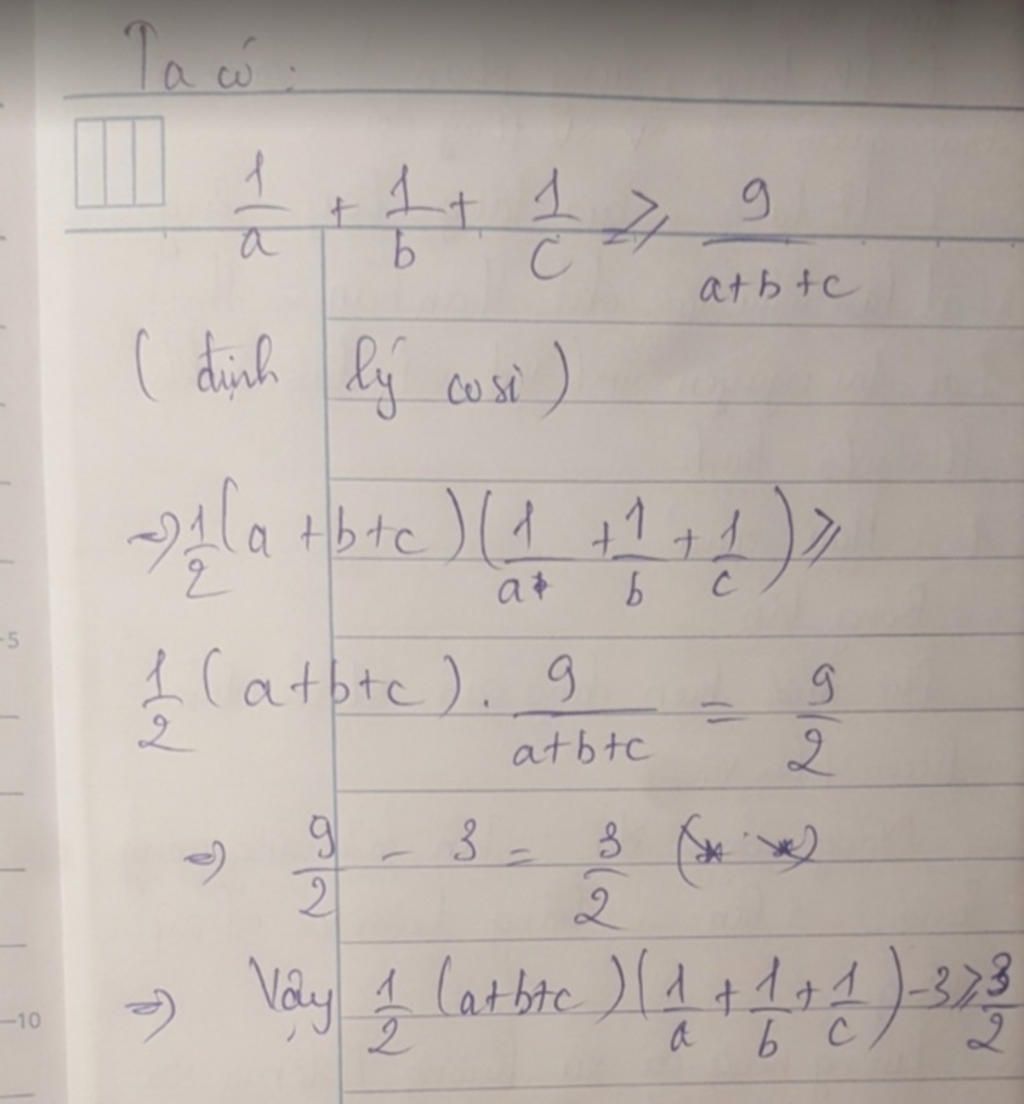 Ta có:
1/a + 1/b + 1/c ≥ 9/(a+b+c)
(định lý cosi)
⇒ 1/2 (a+b+c)(1/a + 1/b + 1/c) ≥
1/2 (a+b+c) . 9/(a+b+c) = 9/2
⇒ 9/2 - 3 = 3/2 (**)
⇒ Vậy 1/2 (a+b+c)(1/a + 1/b + 1/c) - 3 ≥ 3/2
5
10